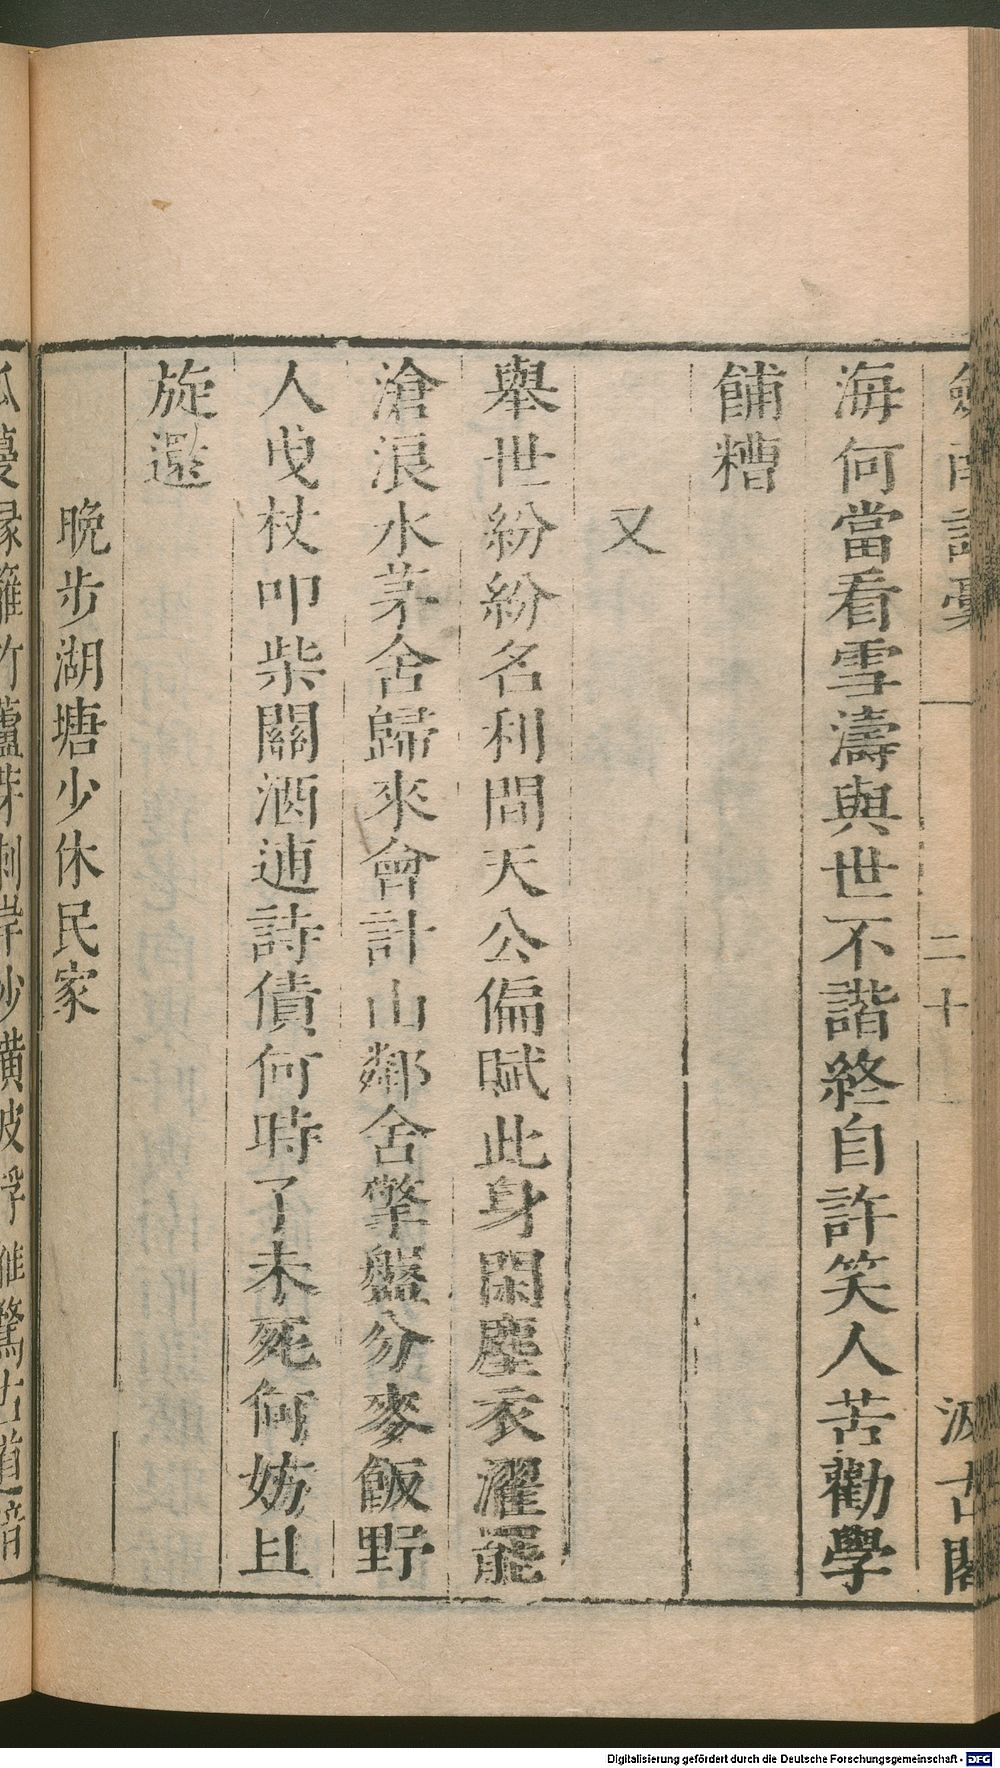 劍南詩稾
二十
汲古閣
海何當看雪濤與世不諧終自許笑人苦勸學
餔糟
又
舉世紛紛名利間天公偏賦此身閑塵衣濯罷
滄浪水茅舍歸來會計山鄰舍擎盤分麥飯野
人曳杖叩柴關酒逋詩債何時了未死何妨且
旋還
晚步湖塘少休民家
瓜蔓緣籬竹蘆芽刺岸沙橫陂浮雊驚古道暗
Digitalisierung gefördert durch die Deutsche Forschungsgemeinschaft - DFG